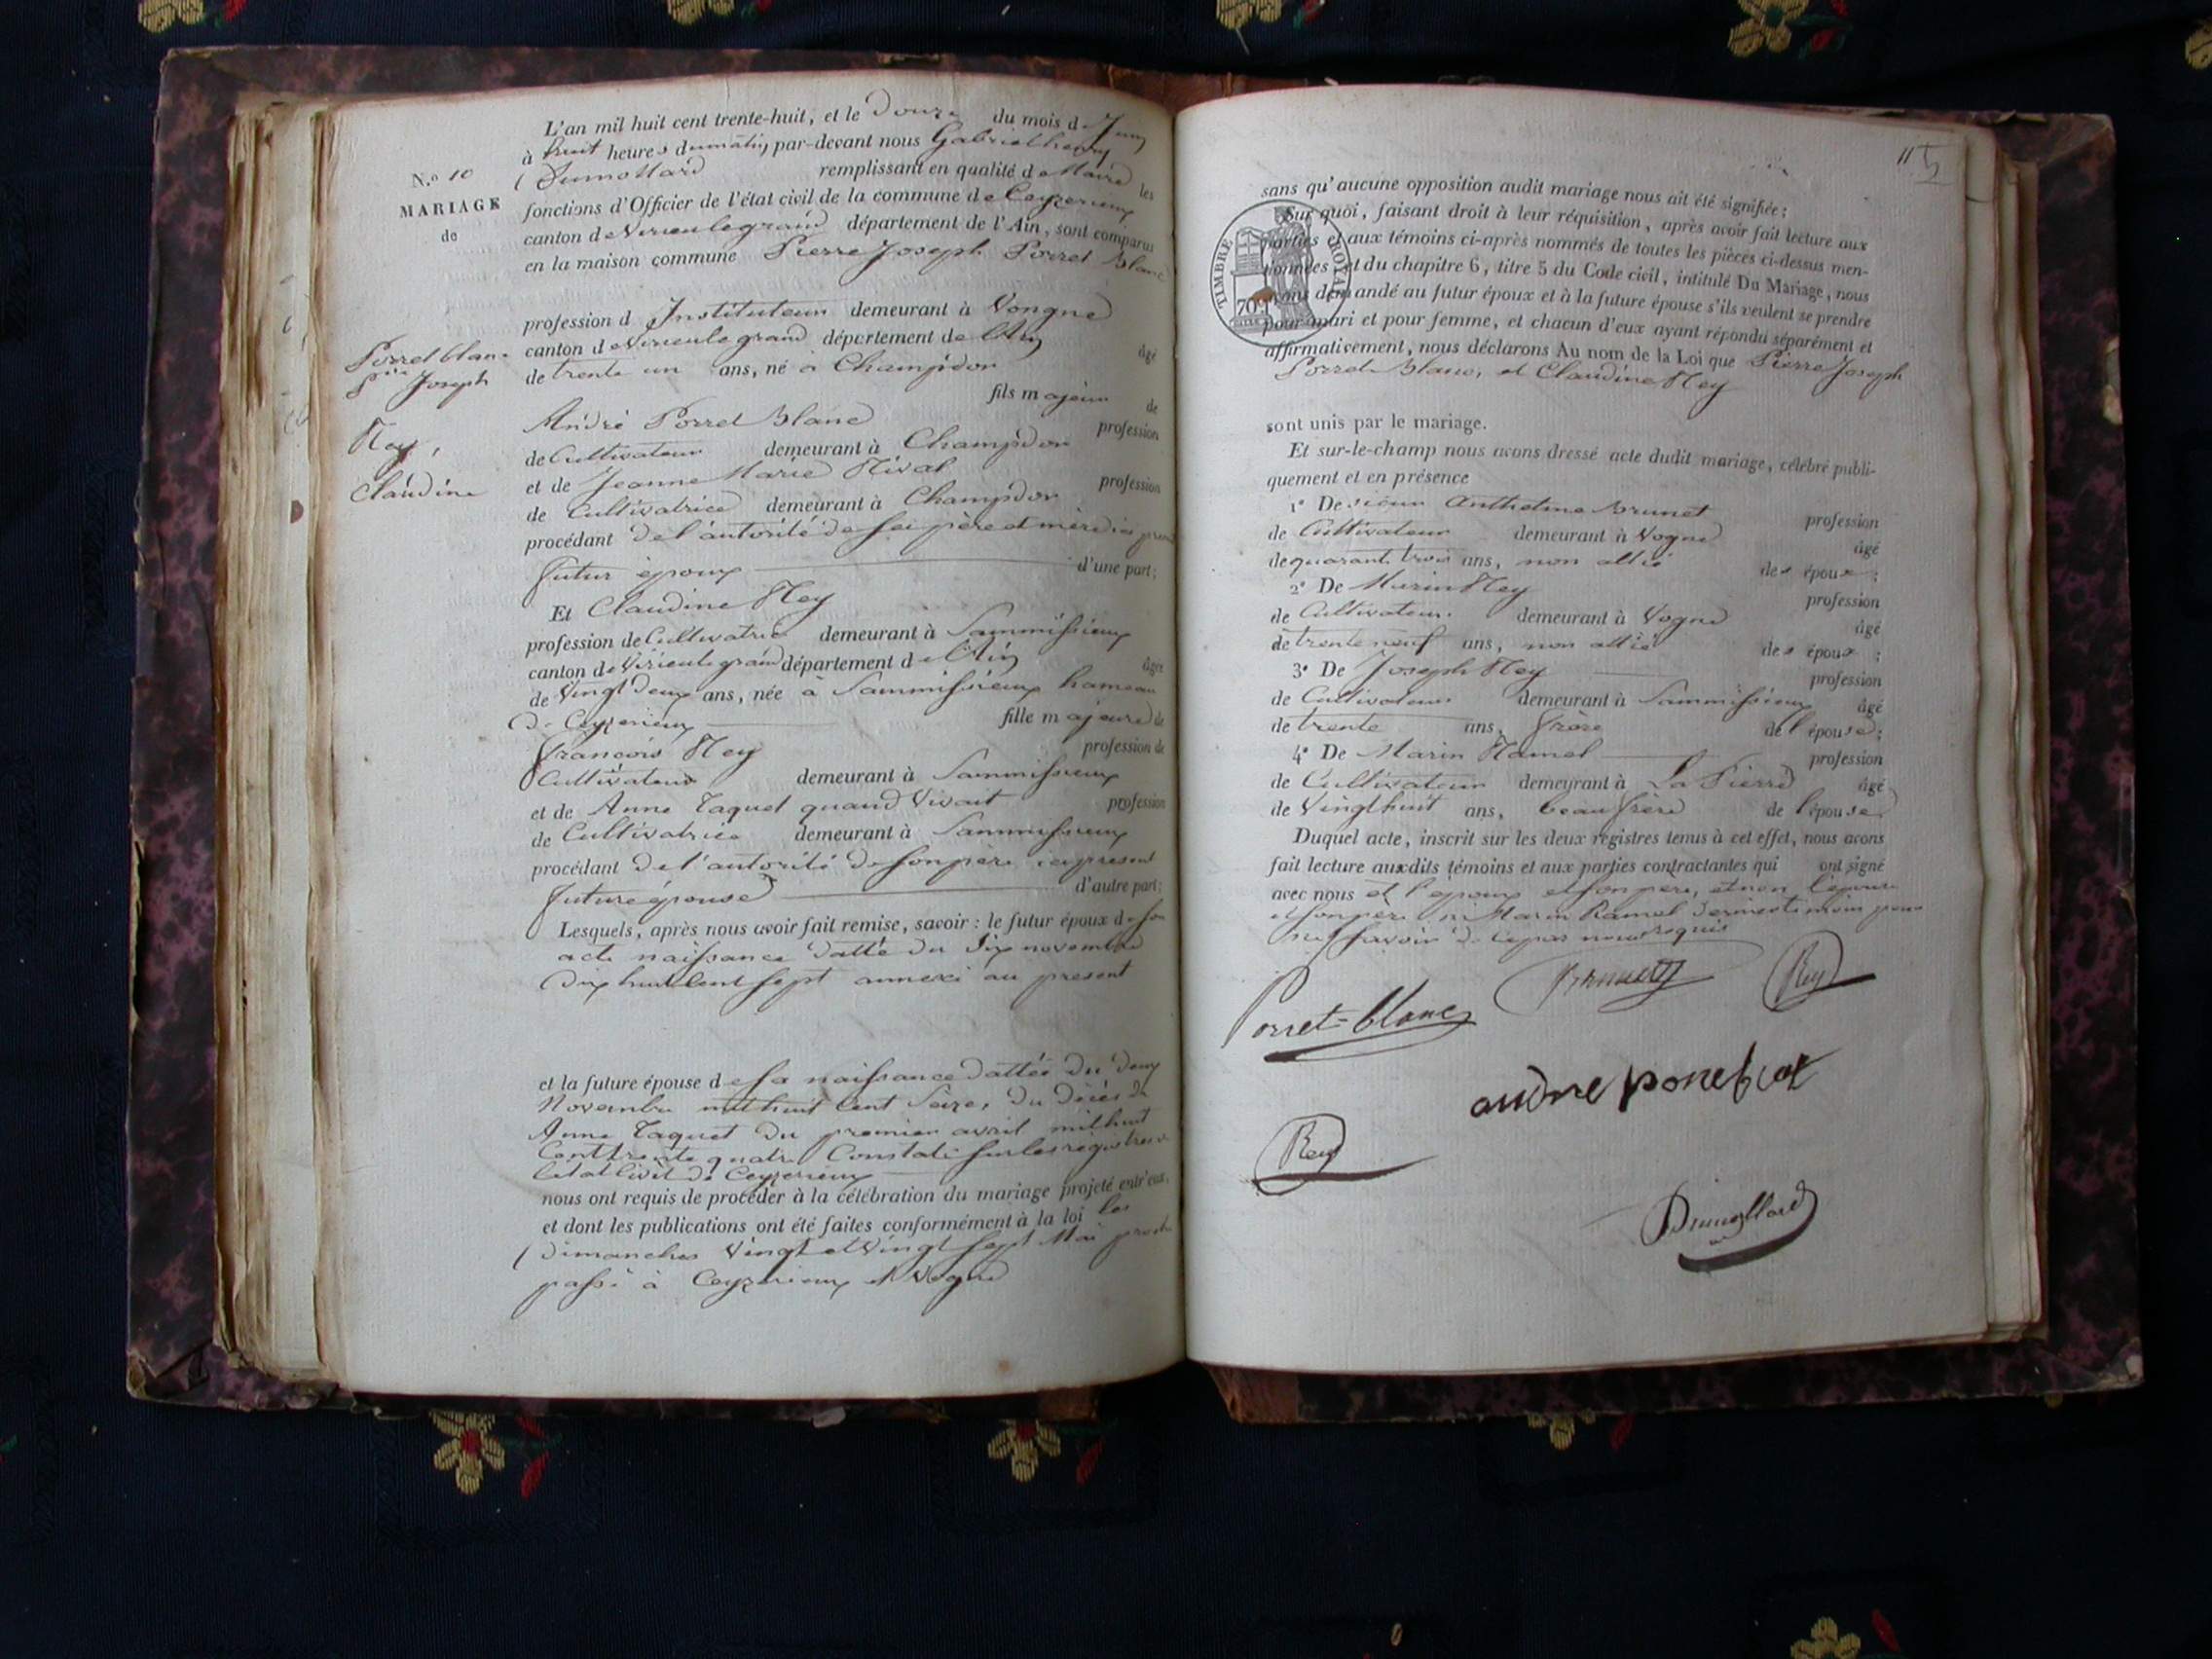 N.o 10
MARIAGE
de
Porret blanc
Pre Joseph
Rey,
Claudine
L'an mil huit cent trente-huit, et le Douze du mois de Juin
à huit heures dumatin, par-devant nous Gabriel henry
Dumollard remplissant en qualité de Maire les
fonctions d'Officier de l'état civil de la commune de Ceyzerieux
canton de Virieulegrand département de l'Ain, sont comparus
en la maison commune Pierre Joseph Porret Blanc
profession d'Instituteur demeurant à Vongne
canton de Virieulegrand département de l'Ain âgé
de trente un ans, né à Champdor
fils majeur de
André Porret Blanc profession
de Cultivateur demeurant à Champdor
et de Jeanne Marie Rival profession
de Cultivatrice demeurant à Champdor
procédant de l'autorité de ses père et mère
futur époux d'une part;
Et Claudine Rey
profession de Cultivatrice demeurant à Sammissieux
canton de Virieulegrand département de l'Ain âgée
de Vingt deux ans, née à Sammissieux hameau
De Ceyzerieux fille majeure de
François Rey profession de
Cultivateur demeurant à Sammissieux
et de Anne Taquet quand vivait profession
de Cultivatrice demeurant à Sammissieux
procédant de l'autorité de son père icy présent
future épouse d'autre part;
Lesquels, après nous avoir fait remise, savoir: le futur époux de son
acte naissance datté du Six novembre
dix huit cent sept annexé au present
et la future épouse de sa naissance dattée du deux
Novembre mil huit cent Seize, du Décès de
Anne Taquet du premier avril mil huit
cent trente quatre Constaté sur les registres de
l'état civil de Ceyzerieux
nous ont requis de procéder à la célébration du mariage projeté entr'eux,
et dont les publications ont été faites conformément à la loi les
Dimanches vingt et vingt sept Mai proche
passé à Ceyzerieux et Vogne
115
TIMBRE ROYAL
70
sans qu'aucune opposition audit mariage nous ait été signifiée;
Sur quoi, faisant droit à leur réquisition, après avoir fait lecture aux
parties et aux témoins ci-après nommés de toutes les pièces ci-dessus men-
tionnées et du chapitre 6, titre 5 du Code civil, intitulé Du Mariage, nous
avons demandé au futur époux et à la future épouse s'ils veulent se prendre
pour mari et pour femme, et chacun d'eux ayant répondu séparément et
affirmativement, nous déclarons Au nom de la Loi que Pierre Joseph
Porret Blanc, et Claudine Rey
sont unis par le mariage.
Et sur-le-champ nous avons dressé acte dudit mariage, célébré publi-
quement et en présence
1° De sieur Anthelme Brunet profession
de Cultivateur demeurant à Vogne âgé
de quarante trois ans, non allié des époux;
2° De Marin Rey profession
de Cultivateur demeurant à Vogne âgé
de trente neuf ans, non allié des époux;
3° De Joseph Rey profession
de Cultivateur demeurant à Sammissieux âgé
de trente ans, frère de l'épouse;
4° De Marin Ramel profession
de Cultivateur demeurant à La Pierre âgé
de Vingt huit ans, beau frère de l'épouse
Duquel acte, inscrit sur les deux registres tenus à cet effet, nous avons
fait lecture auxdits témoins et aux parties contractantes qui ont signé
avec nous et l'époux et son père, et non l'épouse
et son père ni Marin Ramel dernier témoin pour
ne savoir de ce par nous requis
Porret=blanc
Brunet
Rey
andre poret
Rey
Dumollard